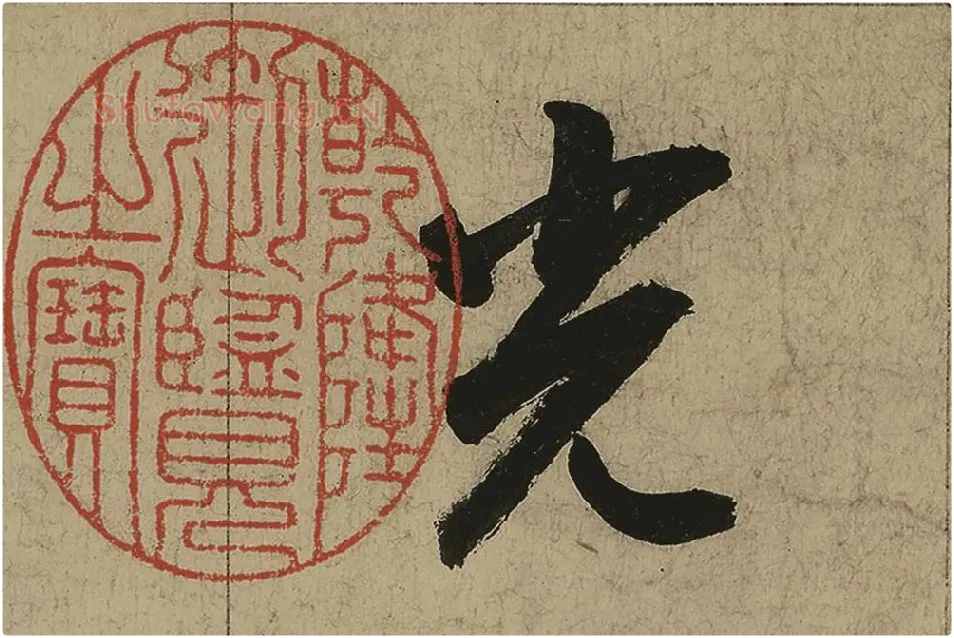 光
乾隆
御覽
之寶
Shufawang.CN